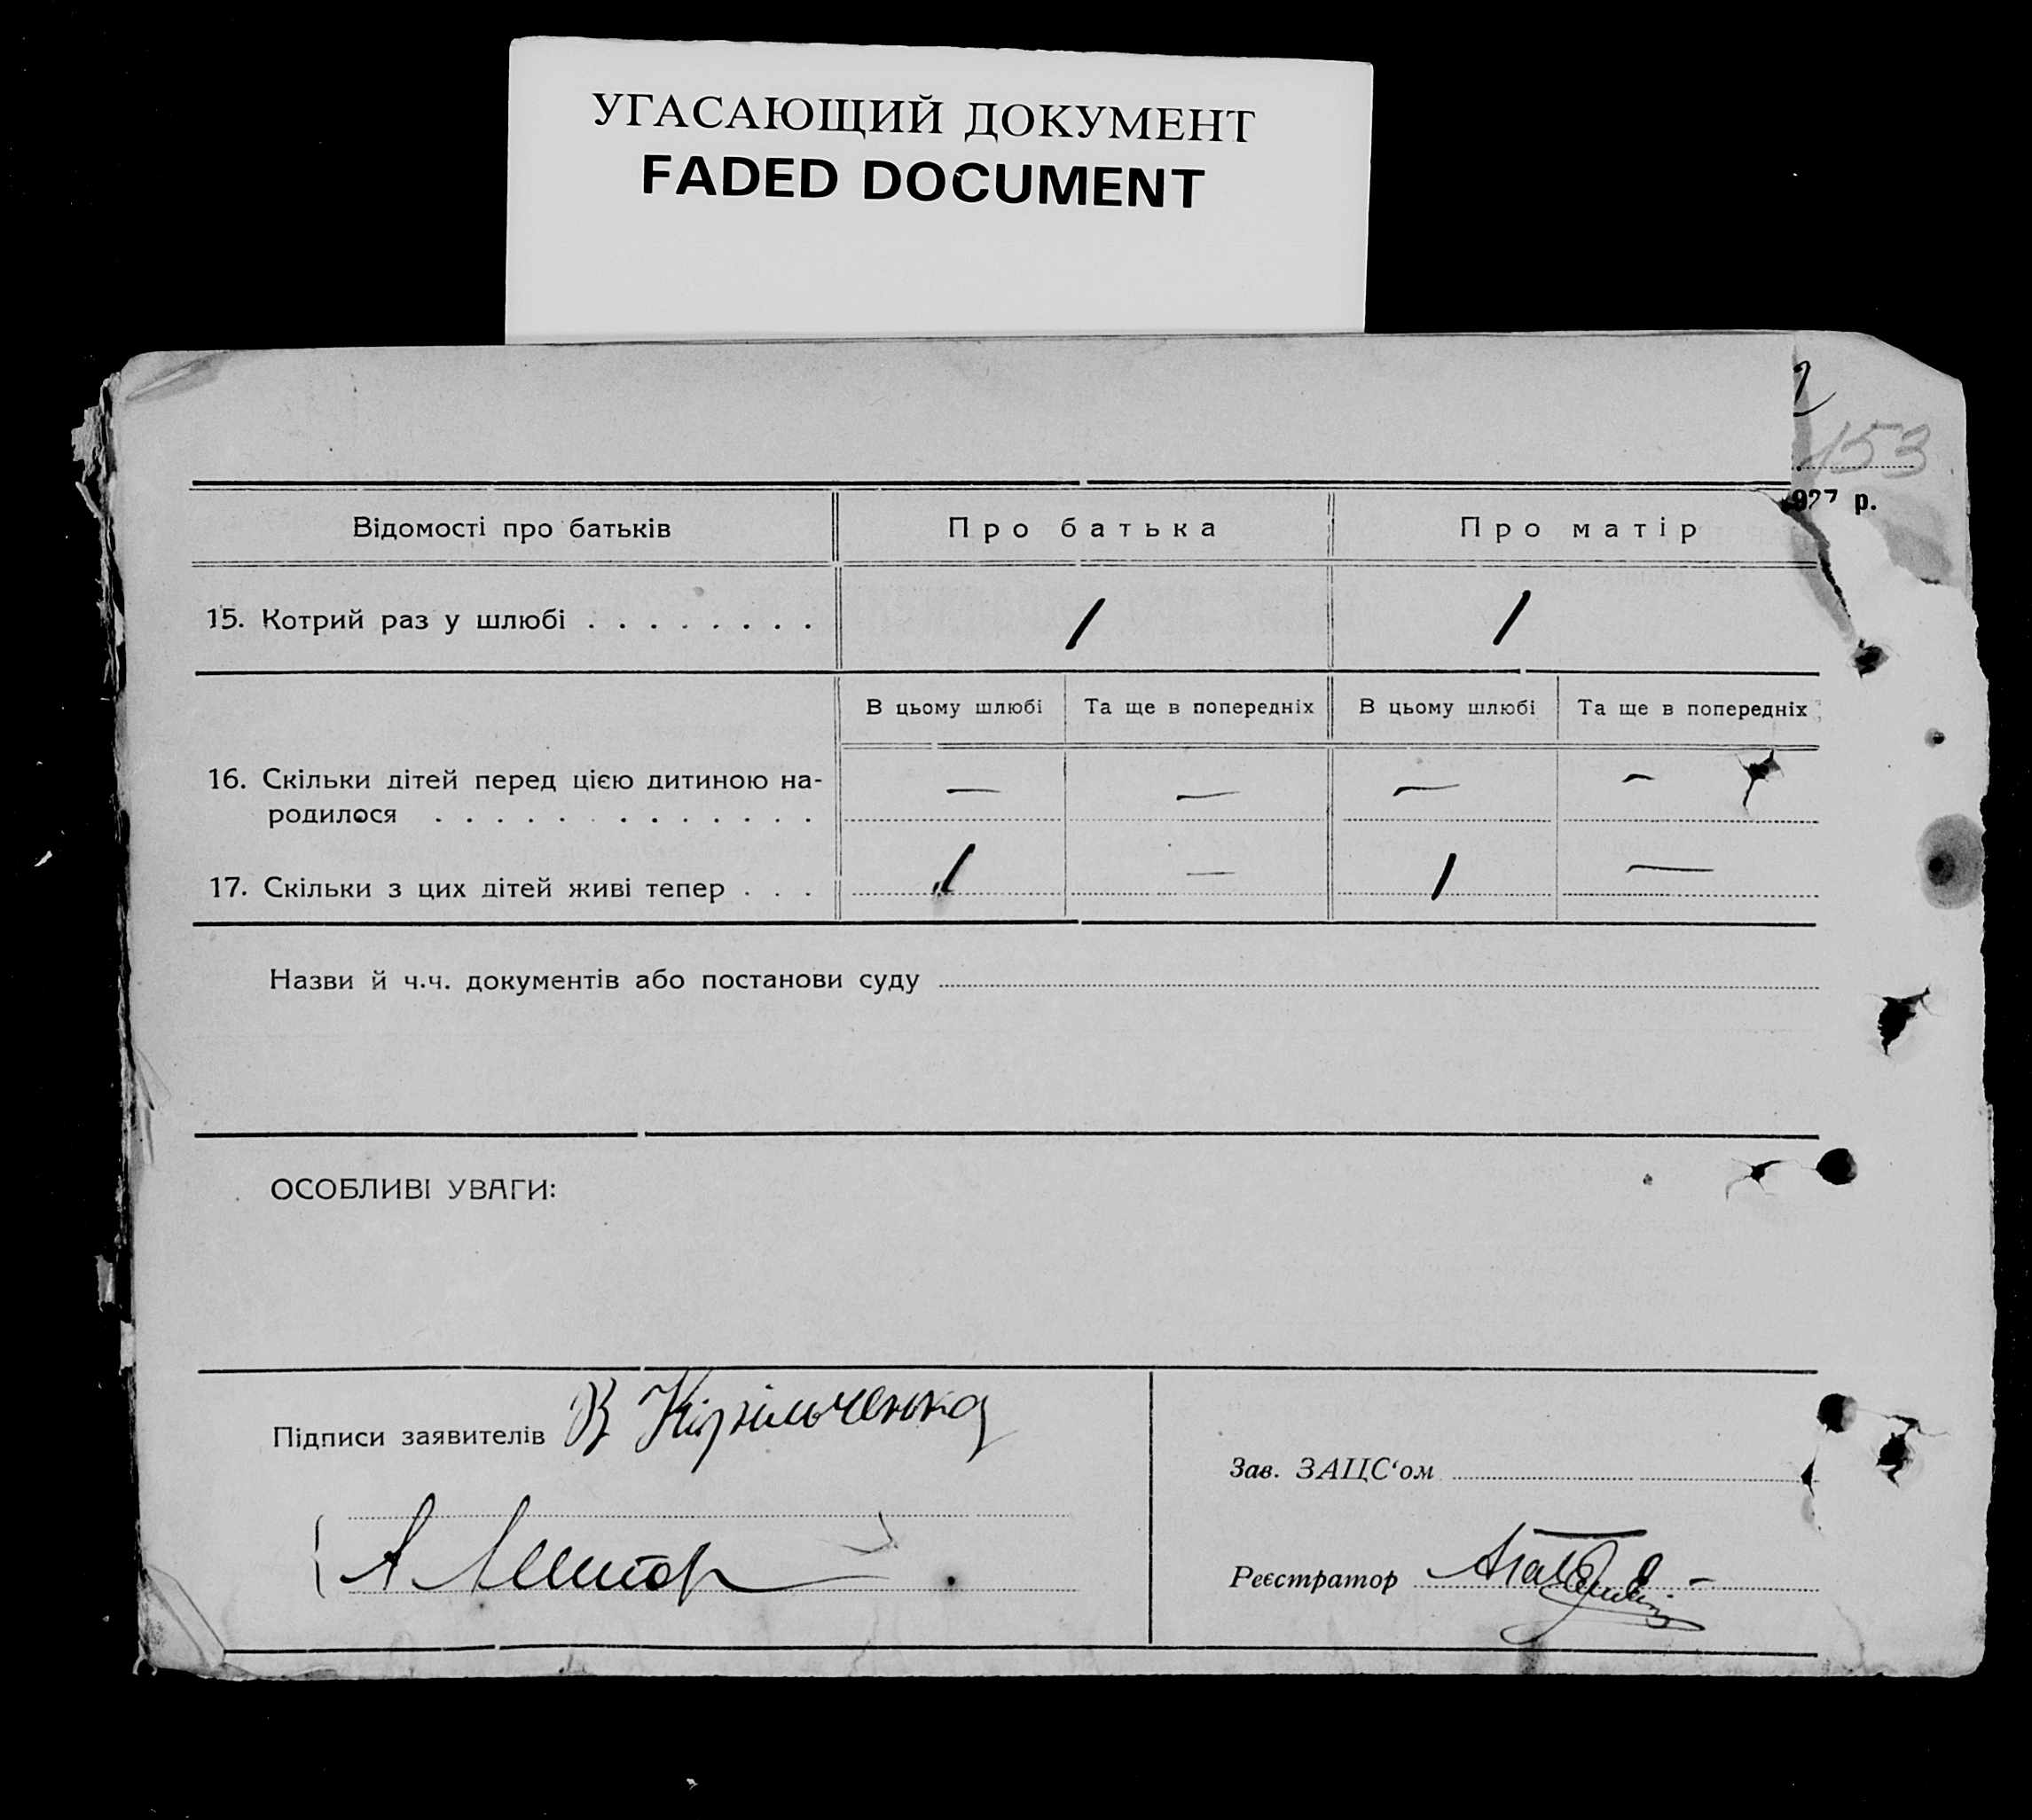 УГАСАЮЩИЙ ДОКУМЕНТ
FADED DOCUMENT
153
927 р.
Відомості про батьків Про батька Про матір
15. Котрий раз у шлюбі . . . . . . . . 1 1
В цьому шлюбі Та ще в попередніх В цьому шлюбі Та ще в попередніх
16. Скільки дітей перед цією дитиною на- — — — —
родилося . . . . . . . . . . . . .
17. Скільки з цих дітей живі тепер . . . 1 — 1 —
Назви й ч.ч. документів або постанови суду
ОСОБЛИВІ УВАГИ:
Підписи заявителів
Зав. ЗАЦС‘ом
Реєстратор